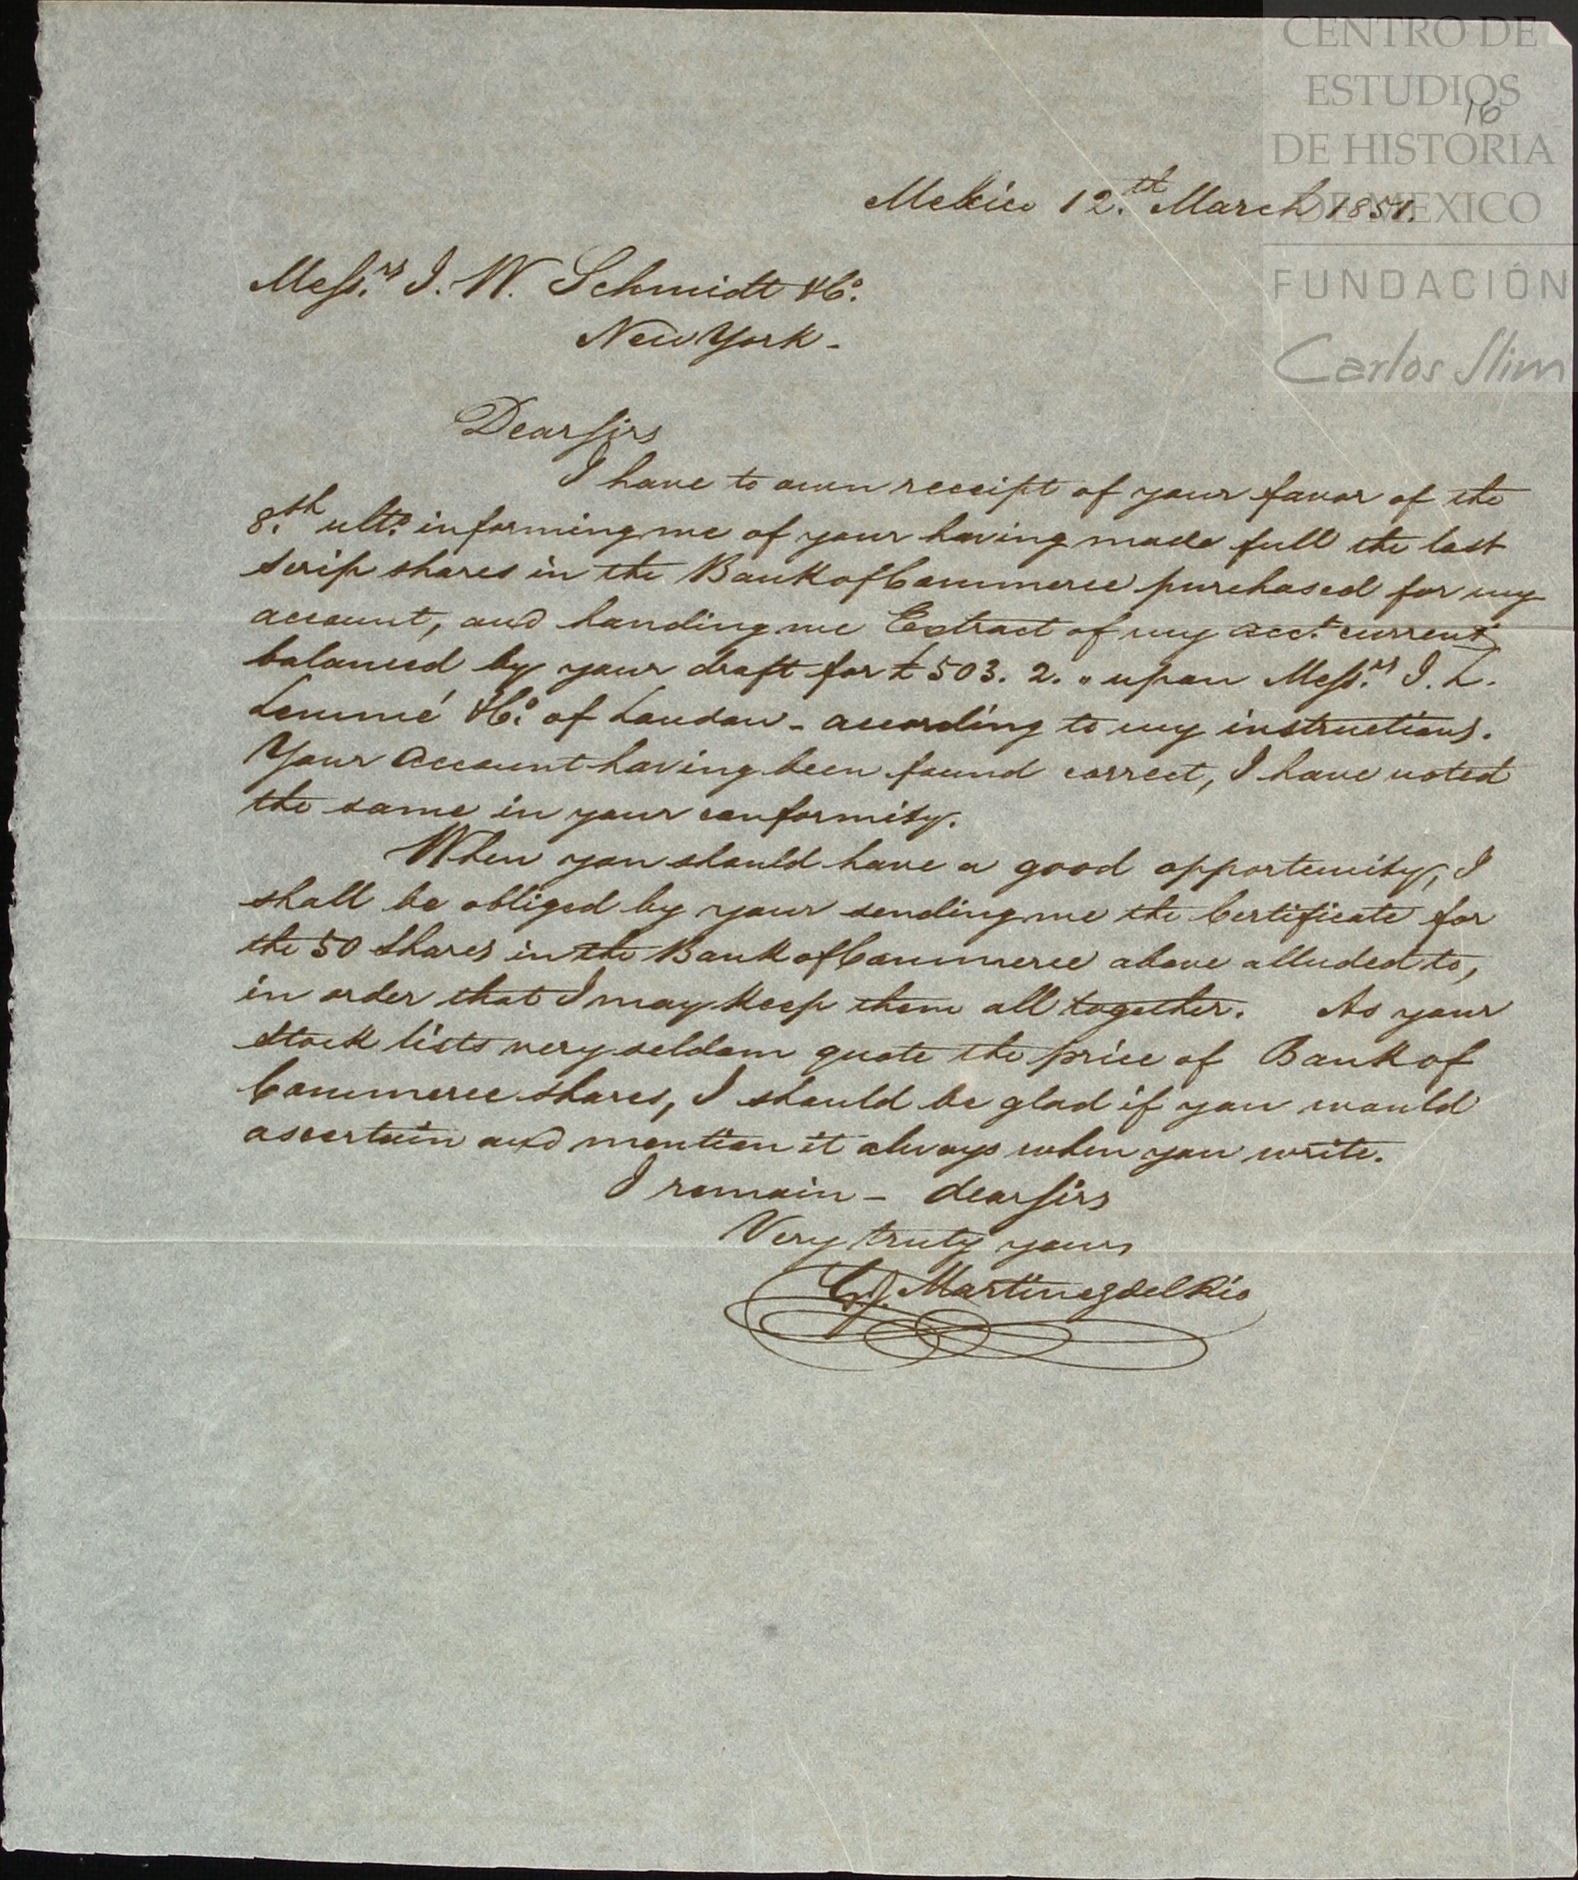 CENTRO DE
ESTUDIOS
16
DE HISTORIA
DE MEXICO
FUNDACIÓN
Carlos Slim
Mexico 12.th March 1851.
Mess.rs J. W. Schmidt &Co.
New York -
Dear Sirs
I have to own receipt of your favor of the
8.th ulto. informing me of your having made full the last
scrip shares in the Bank of Commerce purchased for my
account, and handing me Extract of my acct. current
balanced by your draft for £503. 2. " upon Mess.rs J. L.
Lemmé &Co. of London - according to my instructions.
Your Account having been found correct, I have noted
the same in your conformity.
When you should have a good opportunity, I
shall be obliged by your sending me the Certificate for
the 50 Shares in the Bank of Commerce above alluded to,
in order that I may keep them all together. As your
Stock lists very seldom quote the price of Bank of
Commerce shares, I should be glad if you would
ascertain and mention it always when you write.
I remain - dear Sirs
Very truly yours
Martinez del Rio